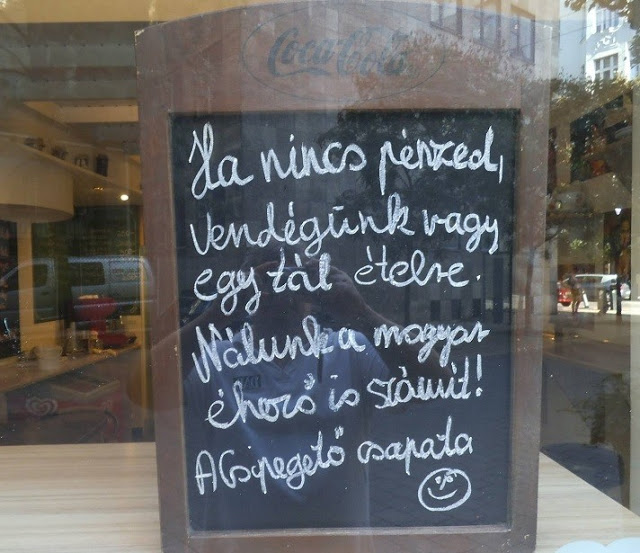 Coca-Cola
Ha nincs pénzed,
vendégünk vagy
egy tál ételre.
Nálunk a magyar
éhező is számít!
A Csipegető csapata